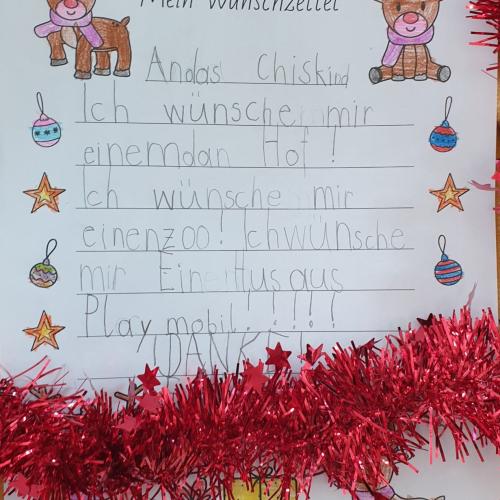 Mein Wunschzettel
Andas Chiskind
Ich wünsche mir
einemdan Hof !
Ich wünsche mir
einenzoo! Ichwünsche
mir Ein Hus aus
Playmobil.!.!.!.!.!
!DANKE!